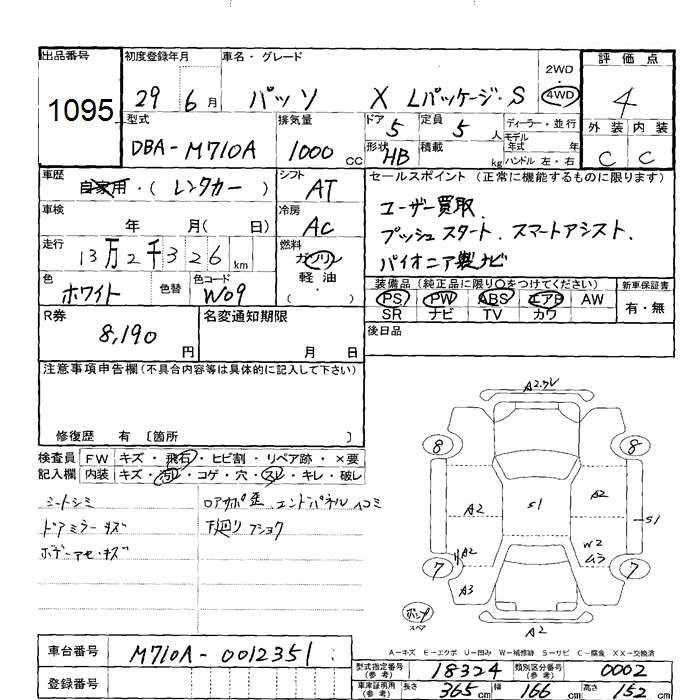 出品番号 初度登録年月 車名・グレード 2WD・4WD 評価点
1095 29 6月 パッソ X Lパッケージ・S 4
型式 排気量 ドア 5 定員 5人 ディーラー・並行 外装 内装
DBA-M710A 1000cc 形状 HB 積載 kg モデル年式 年式 ハンドル 左・右 C C
車歴 自家用・(レンタカー) シフト AT セールスポイント (正常に機能するものに限ります)
車検 年 月( 日) 冷房 AC ユーザー買取.
プッシュスタート. スマートアシスト.
走行 13万2千326km 燃料 ガソリン 軽油・( ) パイオニア製ナビ
色 ホワイト 色替 色コード W09 装備品 (純正品に限り○をつけてください) 新車保証書
PS PW ABS エアB AW 有・無
SR ナビ TV カワ
R券 8,190円 名変通知期限 月 日 後日品
注意事項申告欄(不具合内容等は具体的に記入して下さい)
修復歴 有 〔箇所 〕
検査員 FW キズ・飛石・ヒビ割・リペア跡・×要
記入欄 内装 キズ・汚レ・コゲ・穴・スレ・キレ・破レ
シートシミ ロアサポ歪 エンドパネル凹コミ
ドアミラーキズ 下廻りフショク
ボデーアセ・キズ
A2.ワレ
8 8
A2 S1 A2 S1
A2 W2 ムラ
7 7
A3
A2
スペア
A-キズ E-エクボ U-凹み W-補修跡 S-サビ C-腐食 XX-交換済
車台番号 M710A-0012351
型式指定番号(参考) 18324 類別区分番号(参考) 0002
登録番号 車庫証明用(参考) 長さ 365cm 幅 166cm 高さ 152cm